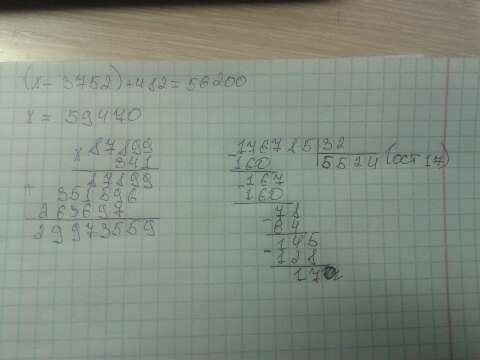 (x - 3752) + 482 = 56200
x = 59470
x 87899
341
87899
+ 351596
263697
29973559
- 176785 | 32
160 5524 (ост 17)
- 167
160
- 78
64
- 145
128
17